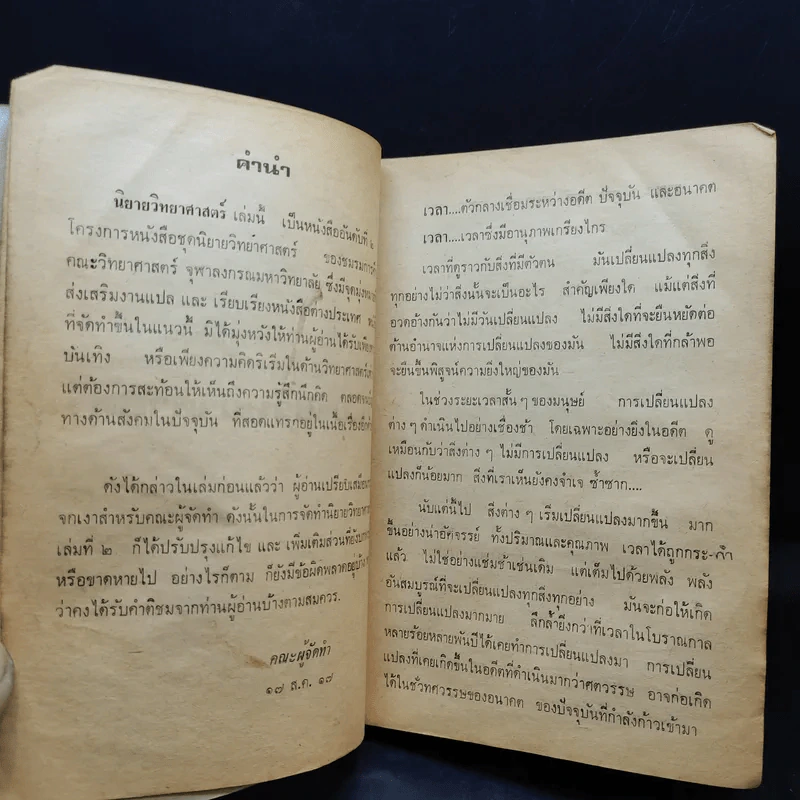 คำนำ
นิยายวิทยาศาสตร์ เล่มนี้ เป็นหนังสืออันดับที่ ๒
โครงการหนังสือชุดนิยายวิทยาศาสตร์ ของชมรม
คณะวิทยาศาสตร์ จุฬาลงกรณมหาวิทยาลัย ซึ่งมีจุด
ส่งเสริมงานแปล และ เรียบเรียงหนังสือต่างประเทศ
ที่จัดทำขึ้นในแนวนี้ มิได้มุ่งหวังให้ท่านผู้อ่านได้รับ
บันเทิง หรือเพียงความคิดริเริ่มในด้านวิทยาศาสตร์
แต่ต้องการสะท้อนให้เห็นถึงความรู้สึกนึกคิด ตลอด
ทางด้านสังคมในปัจจุบัน ที่สอดแทรกอยู่ในเนื้อเรื่อง
ดังได้กล่าวในเล่มก่อนแล้วว่า ผู้อ่านเปรียบเสมือน
จกเงาสำหรับคณะผู้จัดทำ ดังนั้นในการจัดทำนิยายวิทยา
เล่มที่ ๒ ก็ได้ปรับปรุงแก้ไข และ เพิ่มเติมส่วนที่
หรือขาดหายไป อย่างไรก็ตาม ก็ยังมีข้อผิดพลาดอยู่บ้าง
ว่าคงได้รับคำติชมจากท่านผู้อ่านบ้างตามสมควร.
คณะผู้จัดทำ
๑๗ ธ.ค. ๑๗
เวลา....ตัวกลางเชื่อมระหว่างอดีต ปัจจุบัน และอนาคต
เวลา....เวลาซึ่งมีอานุภาพเกรียงไกร
เวลาที่ดูราวกับสิ่งที่มีตัวตน มันเปลี่ยนแปลงทุกสิ่ง
ทุกอย่างไม่ว่าสิ่งนั้นจะเป็นอะไร สำคัญเพียงใด แม้แต่สิ่งที่
อวดอ้างกันว่าไม่มีวันเปลี่ยนแปลง ไม่มีสิ่งใดที่จะยืนหยัดต่อ
ต้านอำนาจแห่งการเปลี่ยนแปลงของมัน ไม่มีสิ่งใดที่กล้าพอ
จะยืนขึ้นพิสูจน์ความยิ่งใหญ่ของมัน
ในช่วงระยะเวลาสั้น ๆ ของมนุษย์ การเปลี่ยนแปลง
ต่าง ๆ ดำเนินไปอย่างเชื่องช้า โดยเฉพาะอย่างยิ่งในอดีต ดู
เหมือนกับว่าสิ่งต่าง ๆ ไม่มีการเปลี่ยนแปลง หรือจะเปลี่ยน
แปลงก็น้อยมาก สิ่งที่เราเห็นยังคงจำเจ ซ้ำซาก....
นับแต่นี้ไป สิ่งต่าง ๆ เริ่มเปลี่ยนแปลงมากขึ้น มาก
ขึ้นอย่างน่าอัศจรรย์ ทั้งปริมาณและคุณภาพ เวลาได้ถูกกระ-ทำ
แล้ว ไม่ใช่อย่างแช่มช้าเช่นเดิม แต่เต็มไปด้วยพลัง พลัง
อันสมบูรณ์ที่จะเปลี่ยนแปลงทุกสิ่งทุกอย่าง มันจะก่อให้เกิด
การเปลี่ยนแปลงมากมาย ลึกล้ำยิ่งกว่าที่เวลาในโบราณกาล
หลายร้อยหลายพันปีได้เคยทำการเปลี่ยนแปลงมา การเปลี่ยน
แปลงที่เคยเกิดขึ้นในอดีตที่ดำเนินมากว่าศตวรรษ อาจก่อเกิด
ได้ในชั่วทศวรรษของอนาคต ของปัจจุบันที่กำลังก้าวเข้ามา